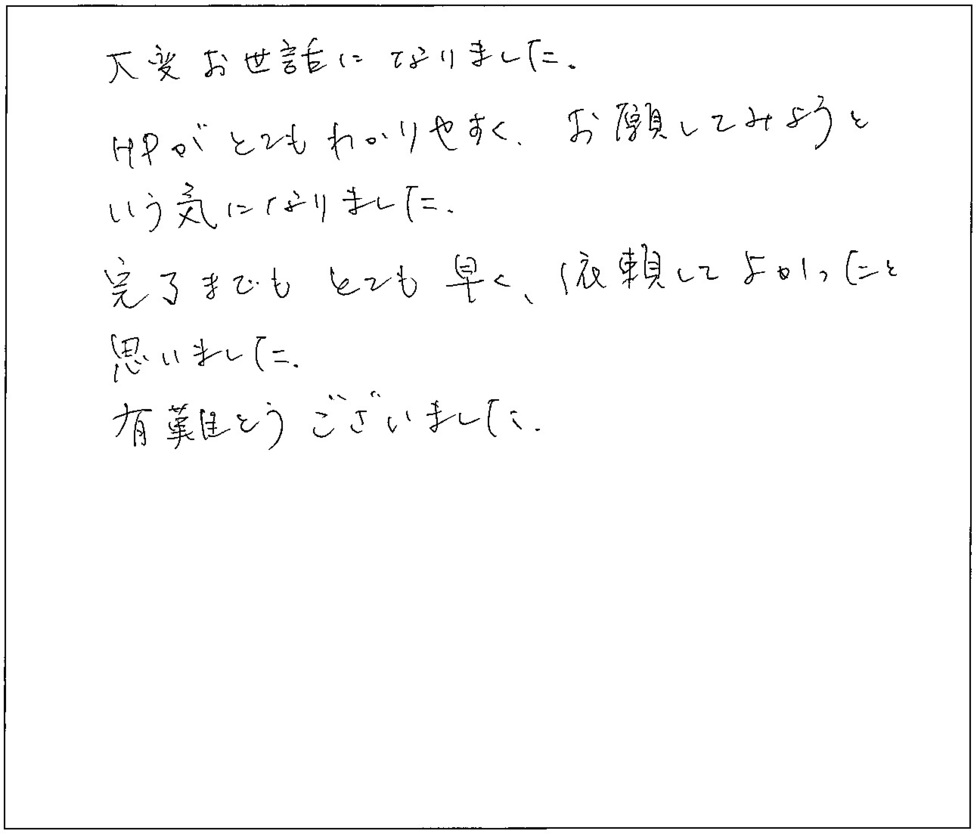 大変お世話になりました。
HPがとてもわかりやすく、お願してみようと
いう気になりました。
完了までもとても早く、依頼してよかったと
思いました。
有難とうございました。